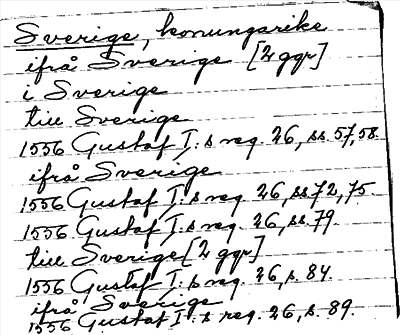 Sverige, konungarike
ifrå Sverige [2 ggr]
i Sverige
till Sverige
1556 Gustaf I:s reg. 26, ss. 57, 58.
ifrå Sverige
1556 Gustaf I:s reg. 26, ss. 72, 75.
1556 Gustaf I:s reg. 26, ss. 79.
till Sverige [2 ggr]
1556 Gustaf I:s reg. 26, s. 84.
ifrå Sverige
1556 Gustaf I:s reg. 26, s. 89.